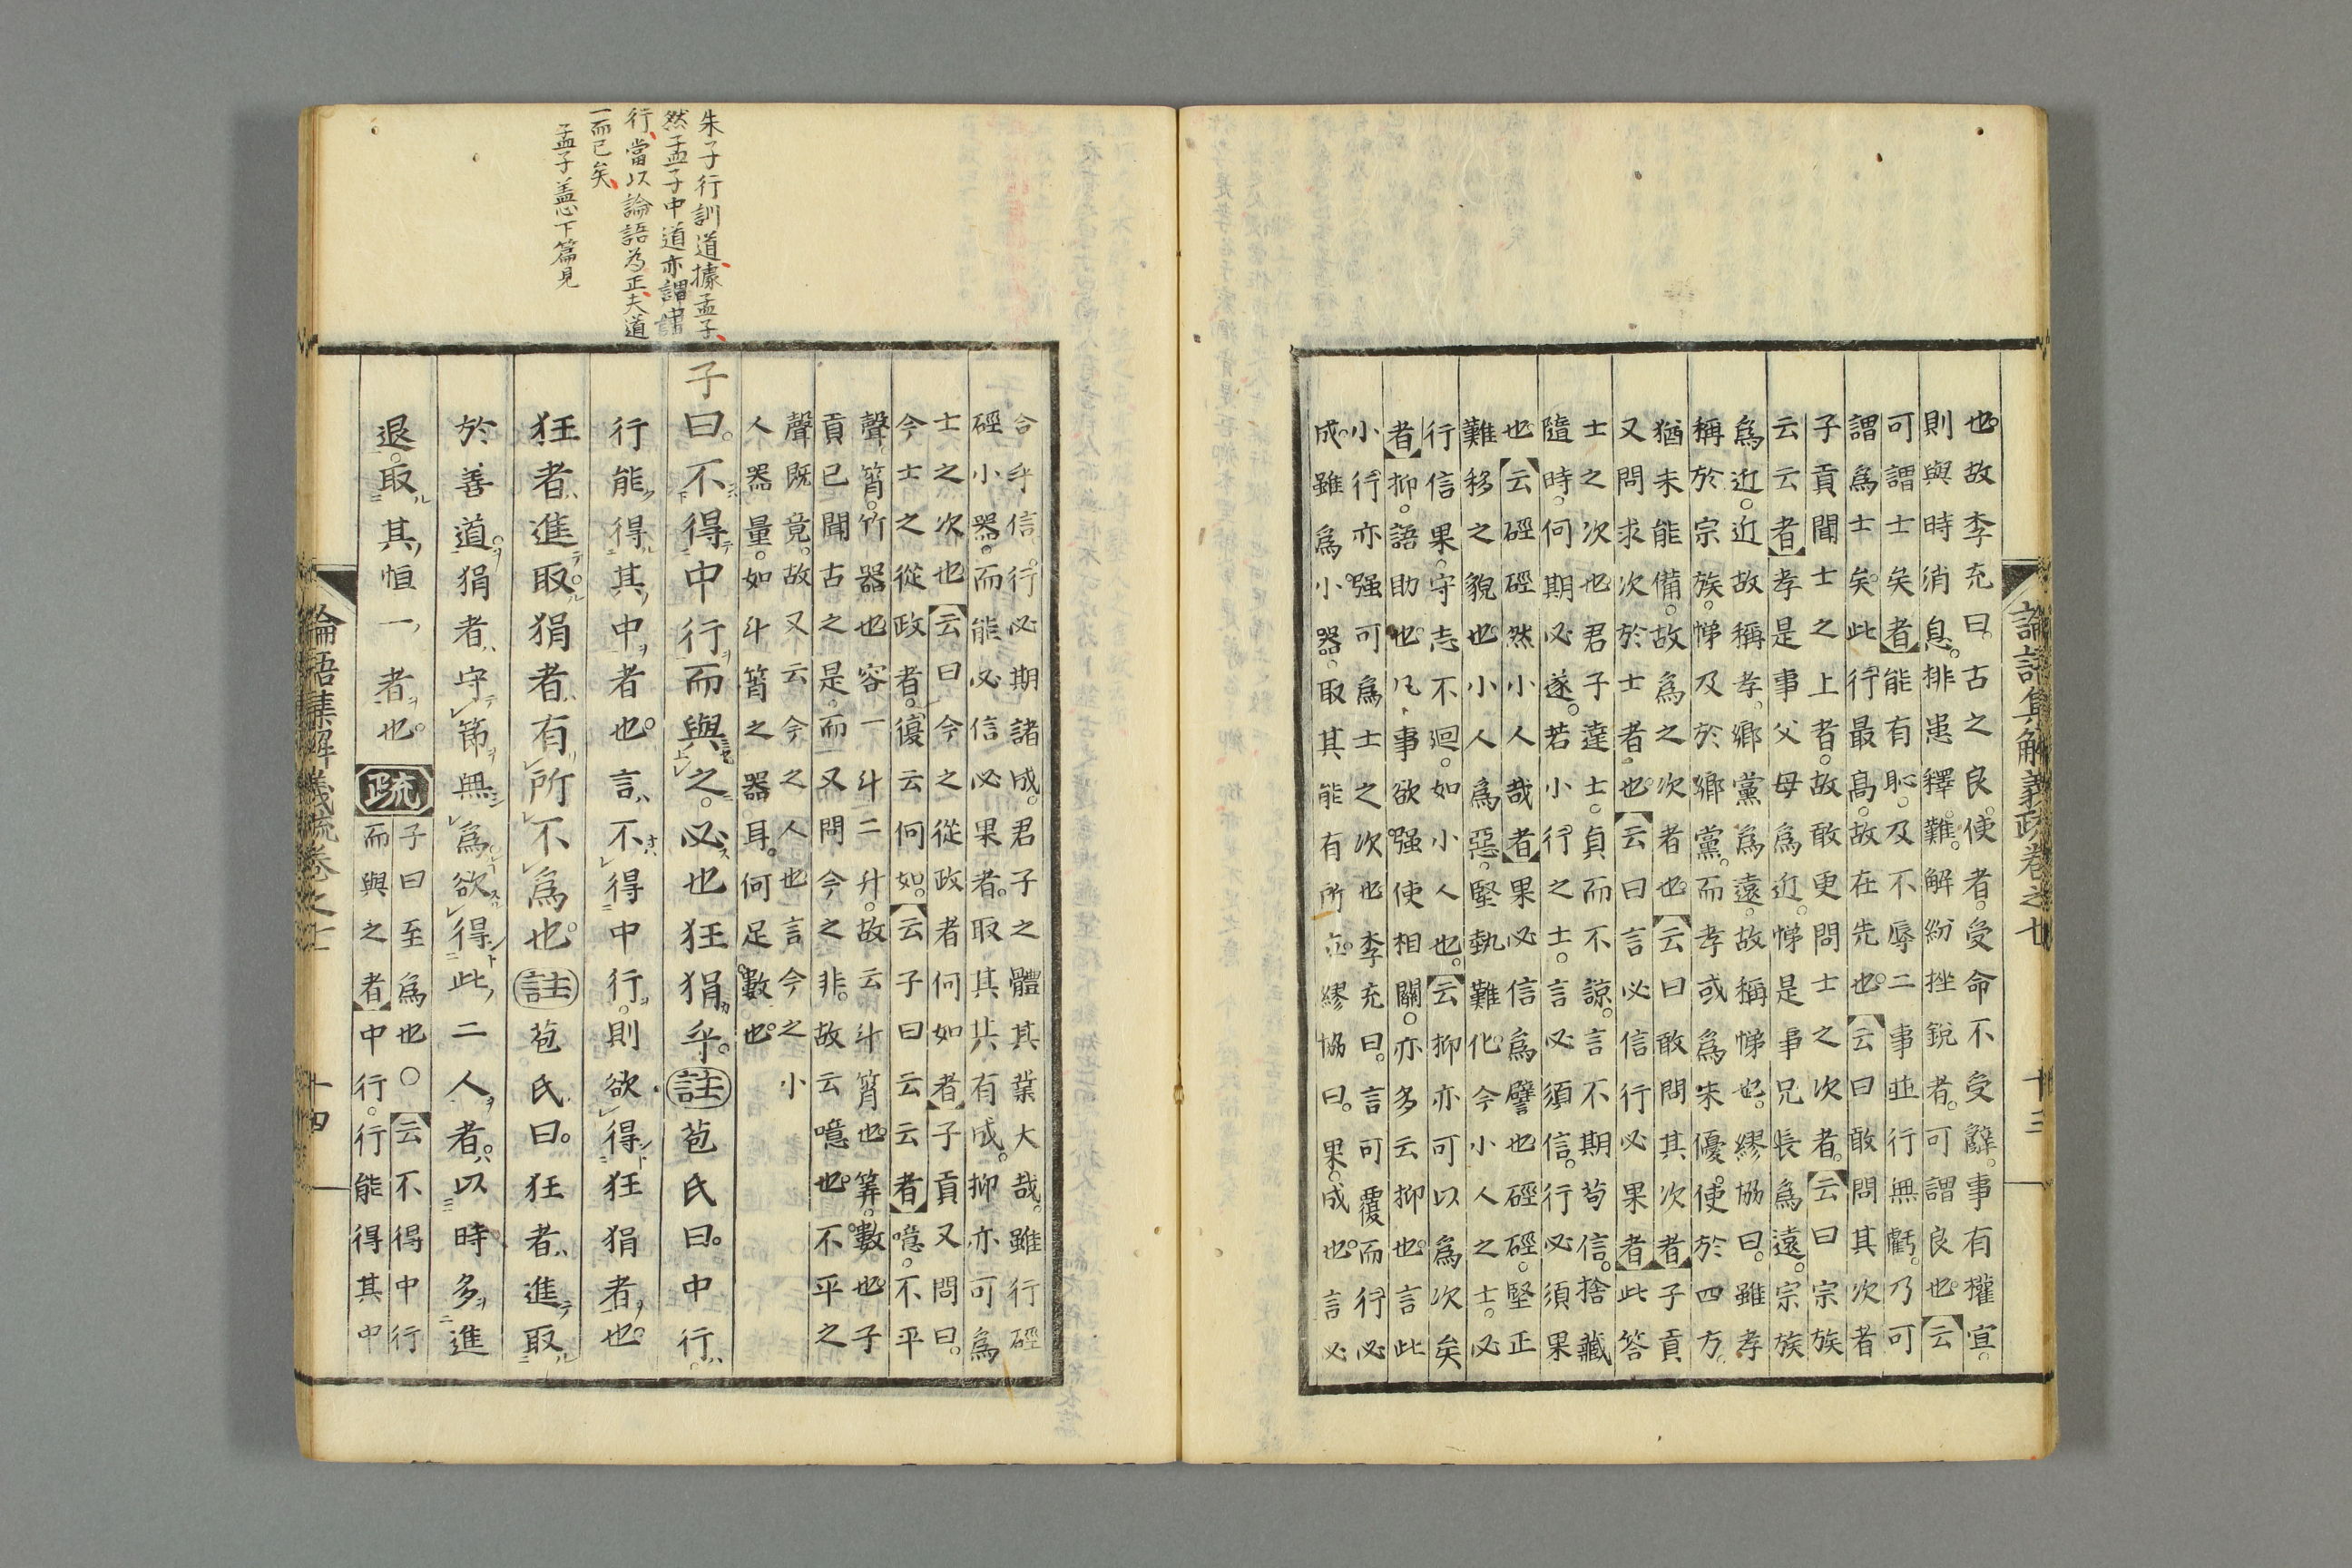 也故李充曰古之良使者受命不受辭事有權宜
則與時消息排患釋難解紛挫銳者可謂良也云
可謂士矣者能有恥及不辱二事並行無虧乃可
謂爲士矣此行最高故在先也云曰敢問其次者
子貢聞士之上者故敢更問士之次者云曰宗族
云云者孝是事父母爲近悌是事兄長爲遠宗族
爲近近故稱孝鄉黨爲遠故稱悌也繆協曰雖孝
稱於宗族悌及於鄉黨而孝或爲未優使於四方
猶未能備故爲之次者也云曰敢問其次者子貢
又問求次於士者也云曰言必信行必果者此答
士之次也君子達士貞而不諒言不期苟信捨藏
隨時何期必遂若小行之士言必須信行必須果
也云硜硜然小人哉者果必信爲譬也硜硜堅正
難移之貌也小人爲惡堅執難化今小人之士必
行信果守志不迴如小人也云抑亦可以爲次矣
者抑語助也凡事欲强使相關亦多云抑也言此
小行亦强可爲士之次也李充曰言可覆而行必
成雖爲小器取其能有所立繆協曰果成也言必
論語集解義疏卷之七 十三
合乎信行必期諸成君子之體其業大哉雖行硜
硜小器而能必信必果者取其共有成抑亦可爲
士之次也云曰今之從政者何如者子貢又問曰
今士之從政者復云何如云子曰云云者噫不平
聲筲竹器也容一斗二升故云斗筲也筭數也子
貢已聞古之是而又問今之非故云噫也不平之
聲既竟故又云今之人也言今之小
人器量如斗筲之器耳何足數也
子曰不得中行而與之必也狂狷乎註苞氏曰中行
行能得其中者也言不得中行則欲得狂狷者也
狂者進取狷者有所不爲也註苞氏曰狂者進取
於善道狷者守節無爲欲得此二人者以時多進
退取其恒一者也疏子曰至爲也○云不得中行
而與之者中行行能得其中
論語集解義疏卷之七 十四
朱子行訓道據孟子
然孟子中道亦謂中
行當以論語為正夫道
一而已矣
孟子盡心下篇見